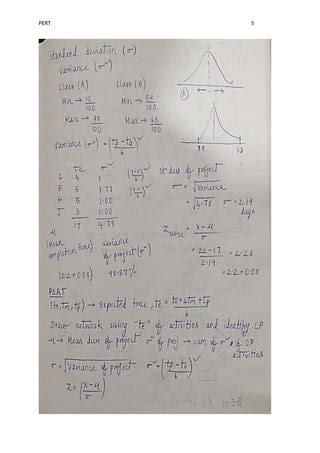 PERT
5
standard deviation (σ)
variance (σ²)
Class (A) Class (B)
Min → 10/100 Min → 51/100
Max → 95/100 Max → 63/100
(A)
Variance (σ²) = (tp - to / 6)²
51 63
te σ²
G 4 1
F 5 1.77
H 5 1.00
J 3 1.00
17 4.78
st dev of project
σ = √variance
= √4.78 σ = 2.19 days
μ
(Mean completion time)
variance of project (σ²)
Zscore = x-μ / σ
= 22-17 / 2.19 = 2.28
= 2.2 + 0.08
(2.2+0.08) 98.87%
PERT
(to, tm, tp) → Expected time, te = to + 4tm + tp / 6
Draw network using "te" of activities and identify CP
μ → Mean dur of project σ² of proj → sum of σ² of CP activities
σ = √Variance of project σ² = (tp - to / 6)²
Z = (x-μ / σ)